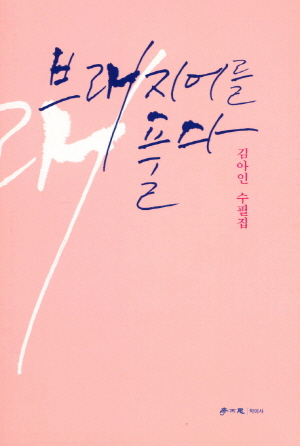 브래지어를
풀다
김아인 수필집
래
학이사